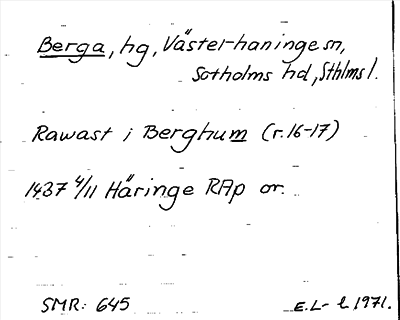 Berga, hg, Västerhaninge sn,
Sotholms hd, Sthlms l.
Rawast i Berghum (r. 16-17)
1437 4/11 Häringe RAp or.
SMR: 645
E.L-l 1971.